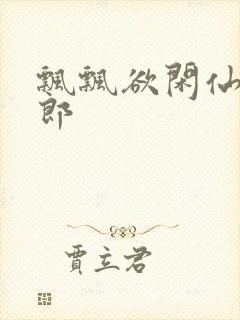 飄飄欲閑仙
郎
賈立君